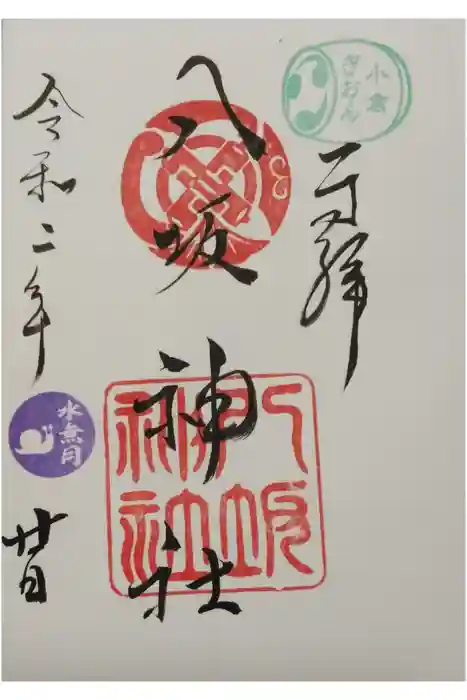 小倉
ぎおん
奉拝
八坂神社
八坂
神社
令和二年
水無月
廿日